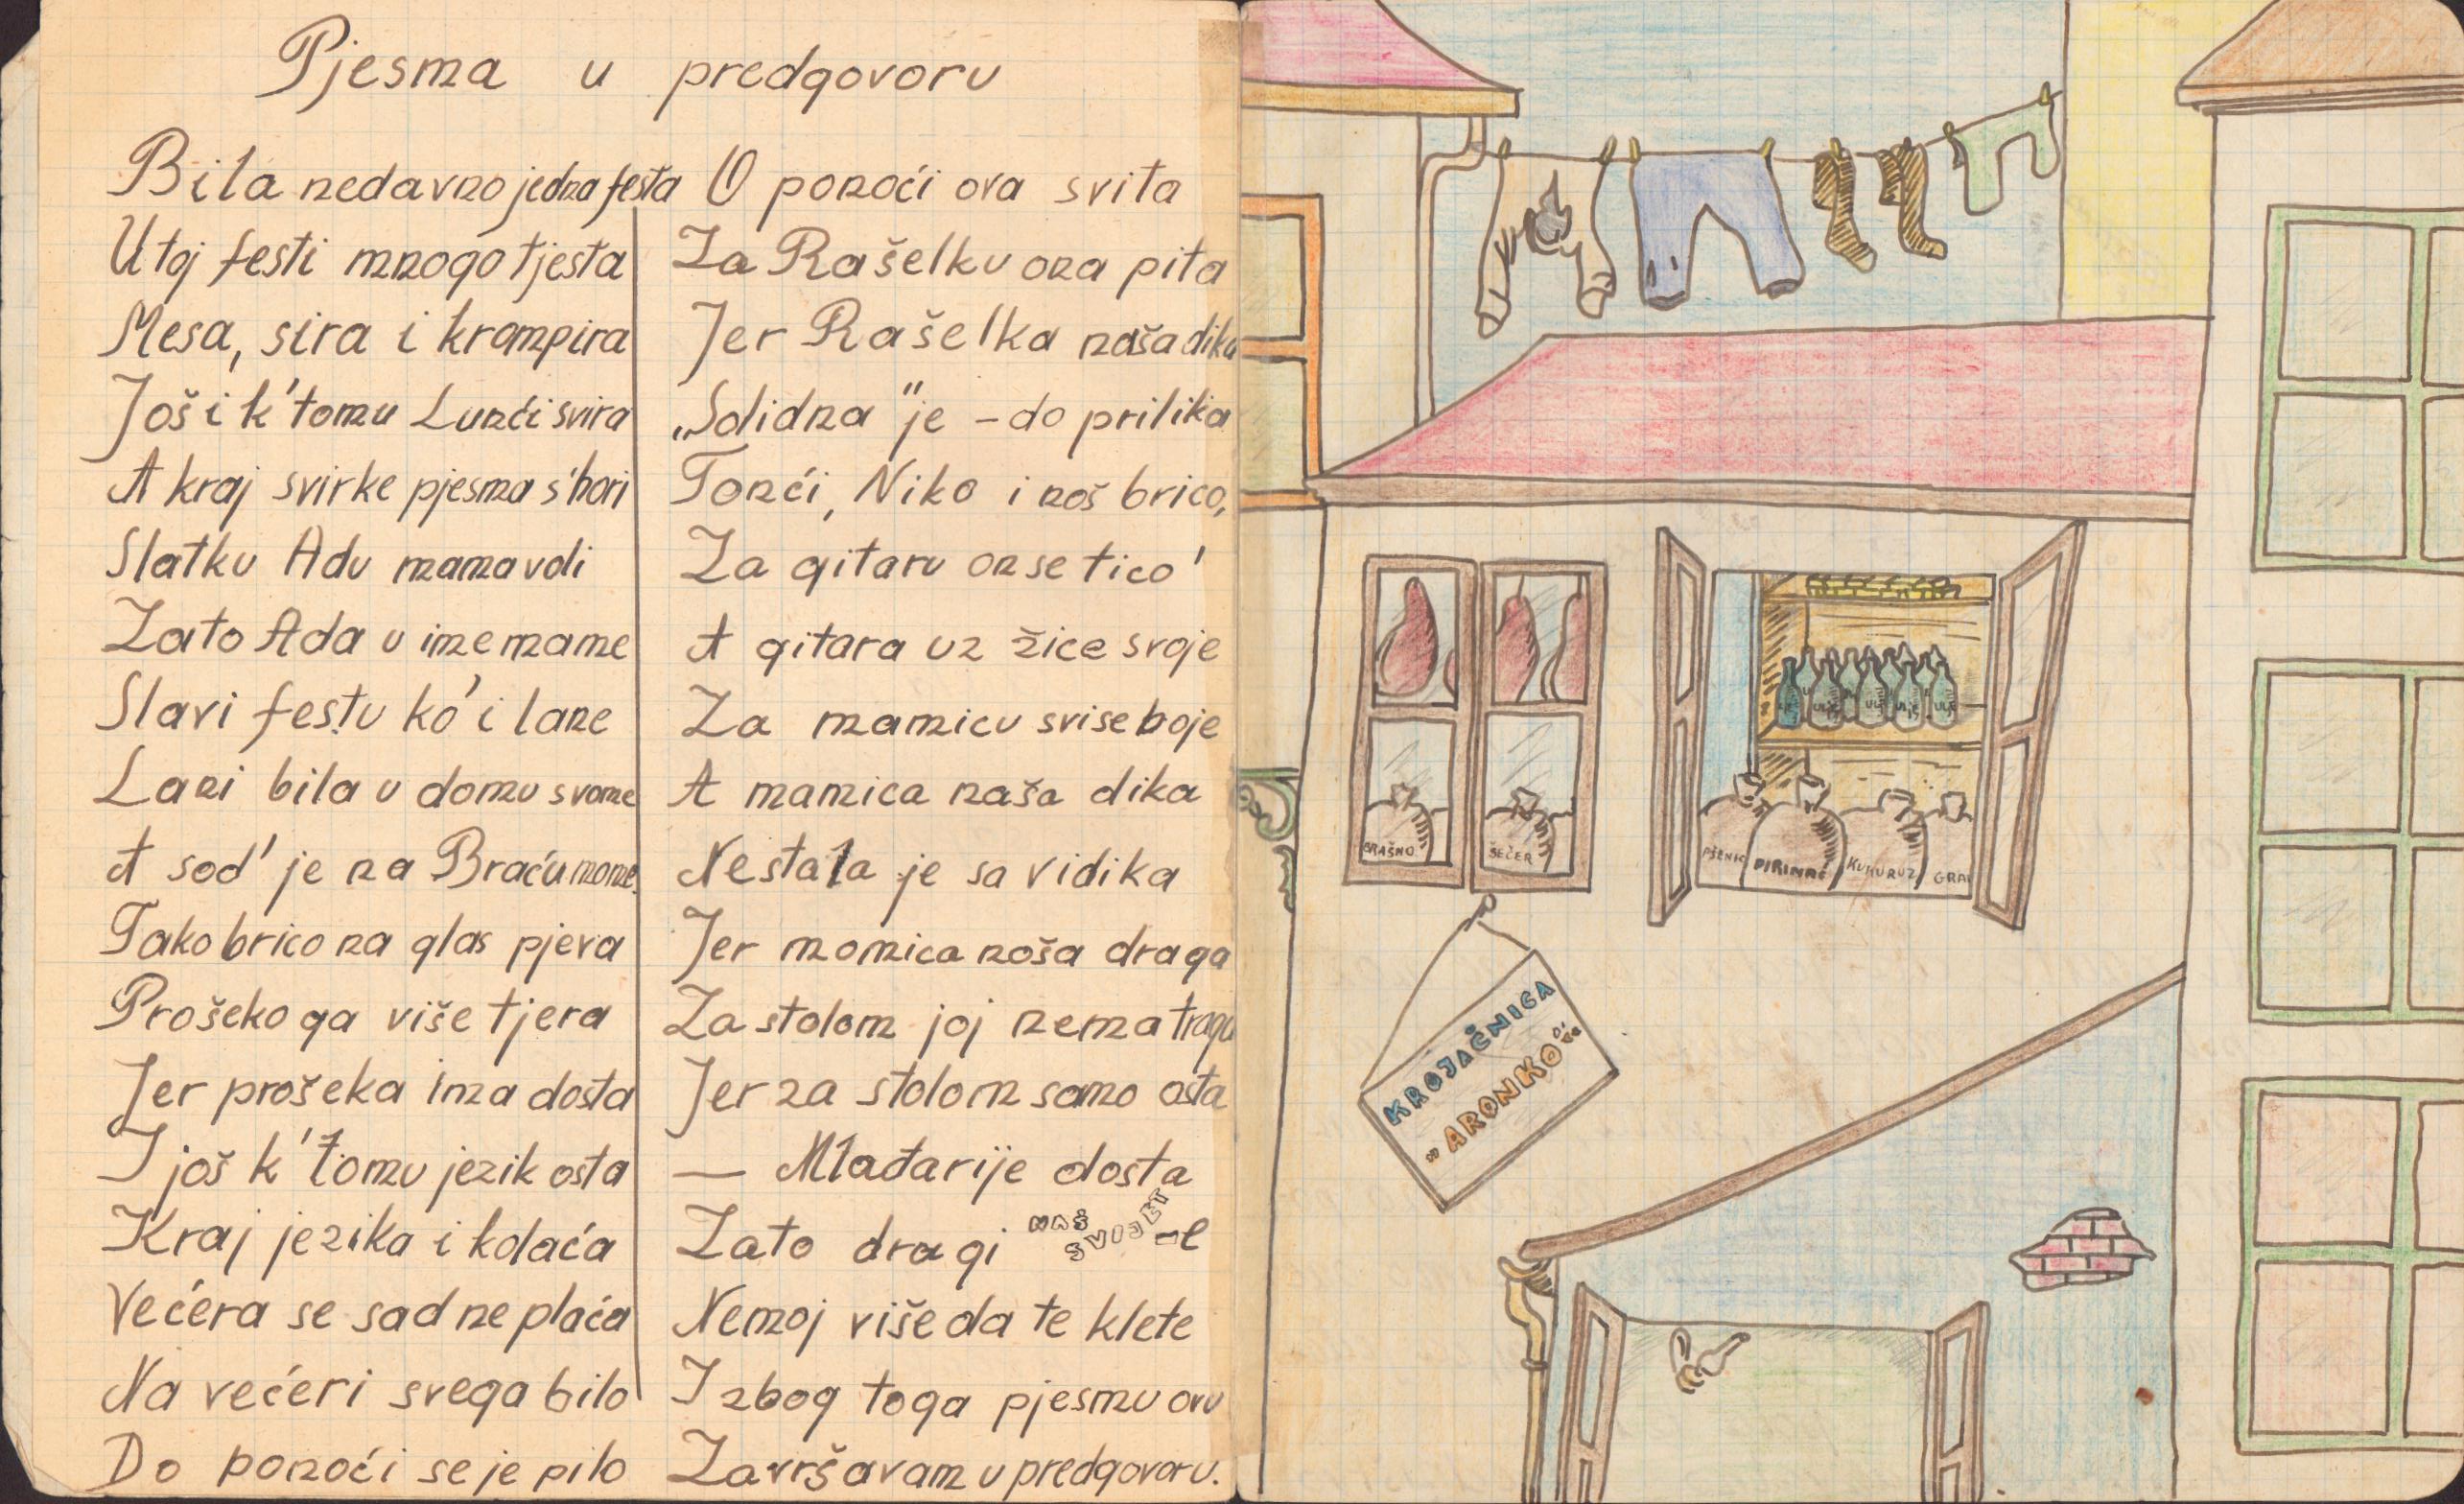 Pjesma u predgovoru
Bila nedavno jedna festa
U toj festi mnogo tjesta
Mesa, sira i krompira
Još i k'tomu Lunći svira
A kraj svirke pjesma s'hori
Slatku Adu mama voli
Zato Ada u ime mame
Slavi festu ko' i lane
Lani bila u domu svome
A sad' je na Braću mome.
Tako brico na glas pjeva
Prošeko ga više tjera
Jer prošeka ima dosta
I još k'tomu jezik osta
Kraj jezika i kolaća
Većera se sad ne plaća
Na većeri svega bilo
Do ponoći se je pilo
O ponoći ova svita
Za Rašelku ona pita
Jer Rašelka naša dika
„Solidna" je - do prilika
Tonći, Niko i noš brico,
Za gitaru on se tico'
A gitara uz žice svoje
Za mamicu svi se boje
A mamica naša dika
Nestala je sa vidika
Jer momica noša draga
Za stolom joj nema traga
Jer za stolom samo osta
— Mlađarije dosta
Zato dragi NAŠ SVIJET-e
Nemoj više da te klete
I zbog toga pjesmu ovu
Završavam u predgovoru.
BRAŠNO
ŠEĆER
ULJE ULJE ULJE ULJE ULJE
PŠENIC PIRINAČ KUKURUZ GRA
KROJAČNICA
"ARONKO"